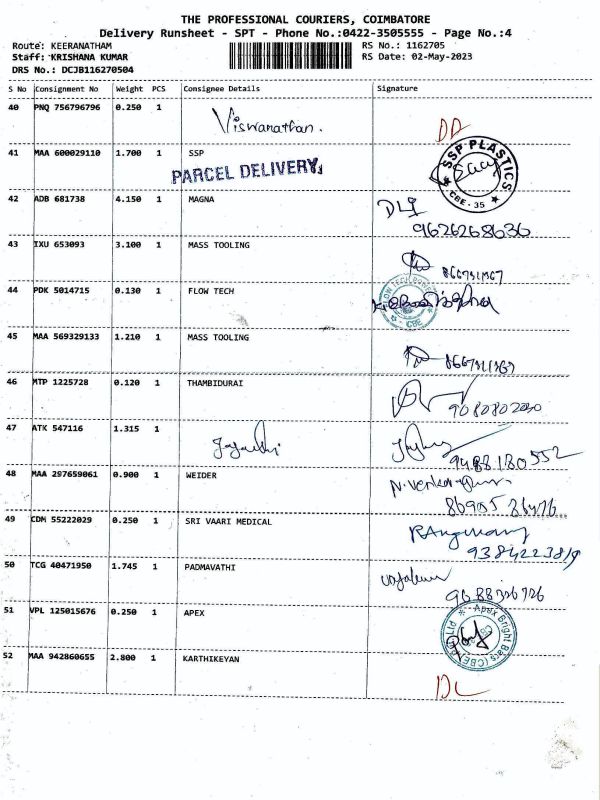 THE PROFESSIONAL COURIERS, COIMBATORE
Delivery Runsheet - SPT - Phone No.:0422-3505555 - Page No.:4
Route: KEERANATHAM RS No.: 1162705
Staff: KRISHANA KUMAR RS Date: 02-May-2023
DRS No.: DCJB116270504
S No Consignment No Weight PCS Consignee Details Signature
40 PNQ 756796796 0.250 1 Viswanathan. DD
41 MAA 600029110 1.700 1 SSP SSP PLASTICS CBE - 35
PARCEL DELIVERY
42 ADB 681738 4.150 1 MAGNA
9626268636
43 IXU 653093 3.100 1 MASS TOOLING
44 PDK 5014715 0.130 1 FLOW TECH
45 MAA 569329133 1.210 1 MASS TOOLING
46 MTP 1225728 0.120 1 THAMBIDURAI
9080802030
47 ATK 547116 1.315 1
9488130552
48 MAA 297659061 0.900 1 WEIDER
49 CDM 55222029 0.250 1 SRI VAARI MEDICAL
9384223819
50 TCG 40471950 1.745 1 PADMAVATHI
9688326726
51 VPL 125015676 0.250 1 APEX Apex Bright Bars (CBE) Pvt Ltd
52 MAA 942860655 2.800 1 KARTHIKEYAN
DL